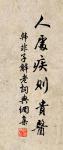 人處疾則貴醫
韓非子解老詞典網集